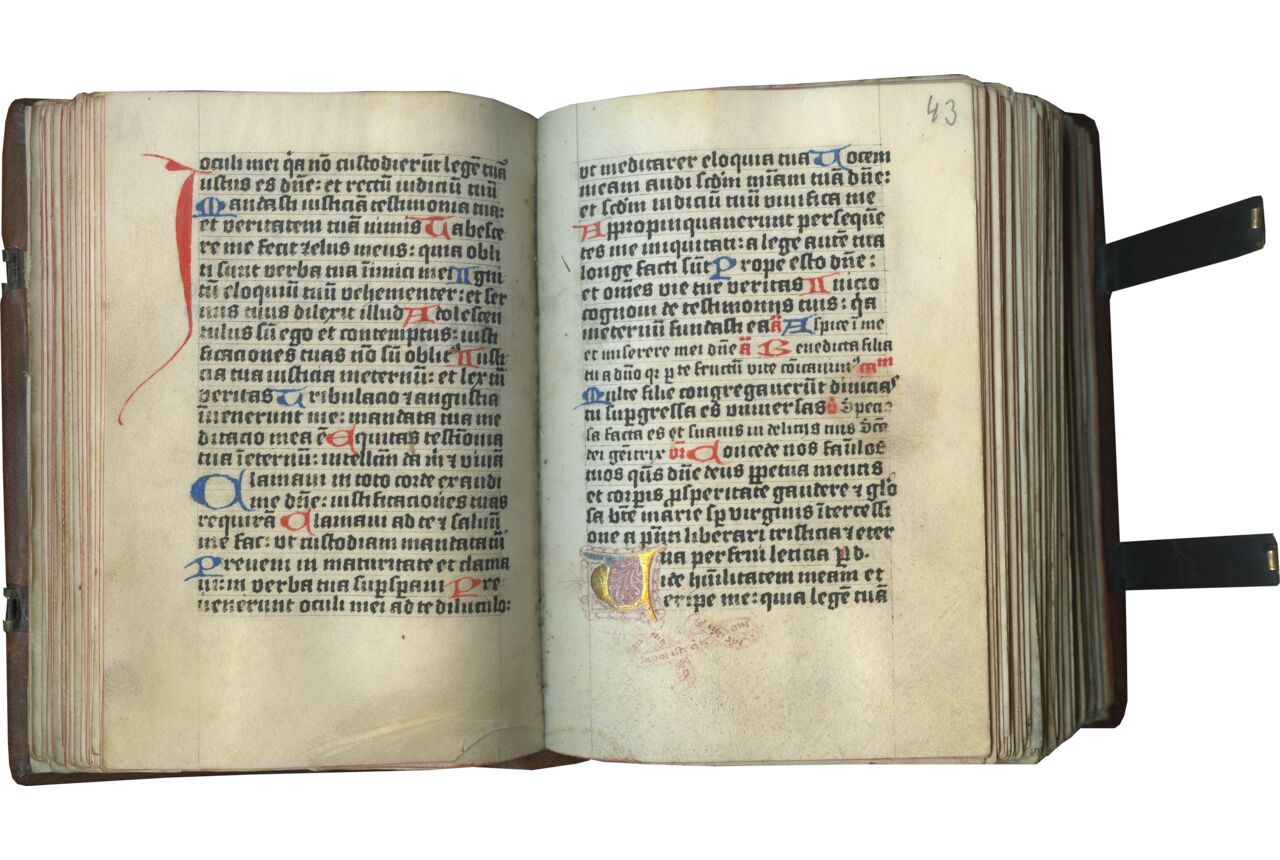 oculi mei q̇a nō custodierūt legē tuā
Iustus es dn̄e: et rectū iudiciū tuū
Mandasti iusticiā testimonia tua:
et veritatem tuā nimis Tabesce
re me fecit zelus meus: quia obli
ti sunt verba tua inimici mei Igni
tū eloquiū tuū vehementer: et ser
uus tuus dilexit illud Adolescen
tulus sū ego et contemptus: iusti
ficaciones tuas nō sū oblit9 Iusti
cia tua iusticia ineternū: et lex tua
veritas Tribulacio et angustia
īuenerunt me: mandata tua me
ditacio mea ē Equitas testīonia
tua ī eternū: intellc̄m da m̄ ⁊ viuā
Clamaui in toto corde exaudi
me dn̄e: iustificaciones tuas
requirā Clamaui ad te ⁊ saluū
me fac: vt custodiam mandata tū
Preueni in maturitate et clama
ui: in verba tua sup̄speraui Pre
uenerunt oculi mei ad te diluculo:
43
vt meditarer eloquia tua Uocem
meam audi scd̄m mīam tuā dn̄e:
et scd̄m iudiciū tuū viuifica me
Appropinquauerunt perseque
tes me iniquitati: a lege autē tua
longe facti sūt Prope esto dn̄e:
et om̄es vie tue veritas Inicio
cognoui de testimonijs tuis: q̇a
ineternū fundasti ea a̅ Aspice ī me
et miserere mei dn̄e a̅ Benedicta filia
tu a dn̄o q̇ p te fructū vite cōicauim9 cam
Multe filie congregauerūt diuicias
tu sup̄gressa es vniuersas v̇ Specı
sa facta es et suauis in delicijs tuis
dei gēitrix or̄ Concede nos famlos
tuos q̄s dn̄e deus ppetua mentis
et corpis p̱speritate gaudere ⁊ glo
sa bt̄e marie sp̄ virginis ītercessi
one a p̄nti liberari tristicia ⁊ eter
na perfrui leticia P d.
Uide hūilitatem meam et
eripe me: quia legē tuā